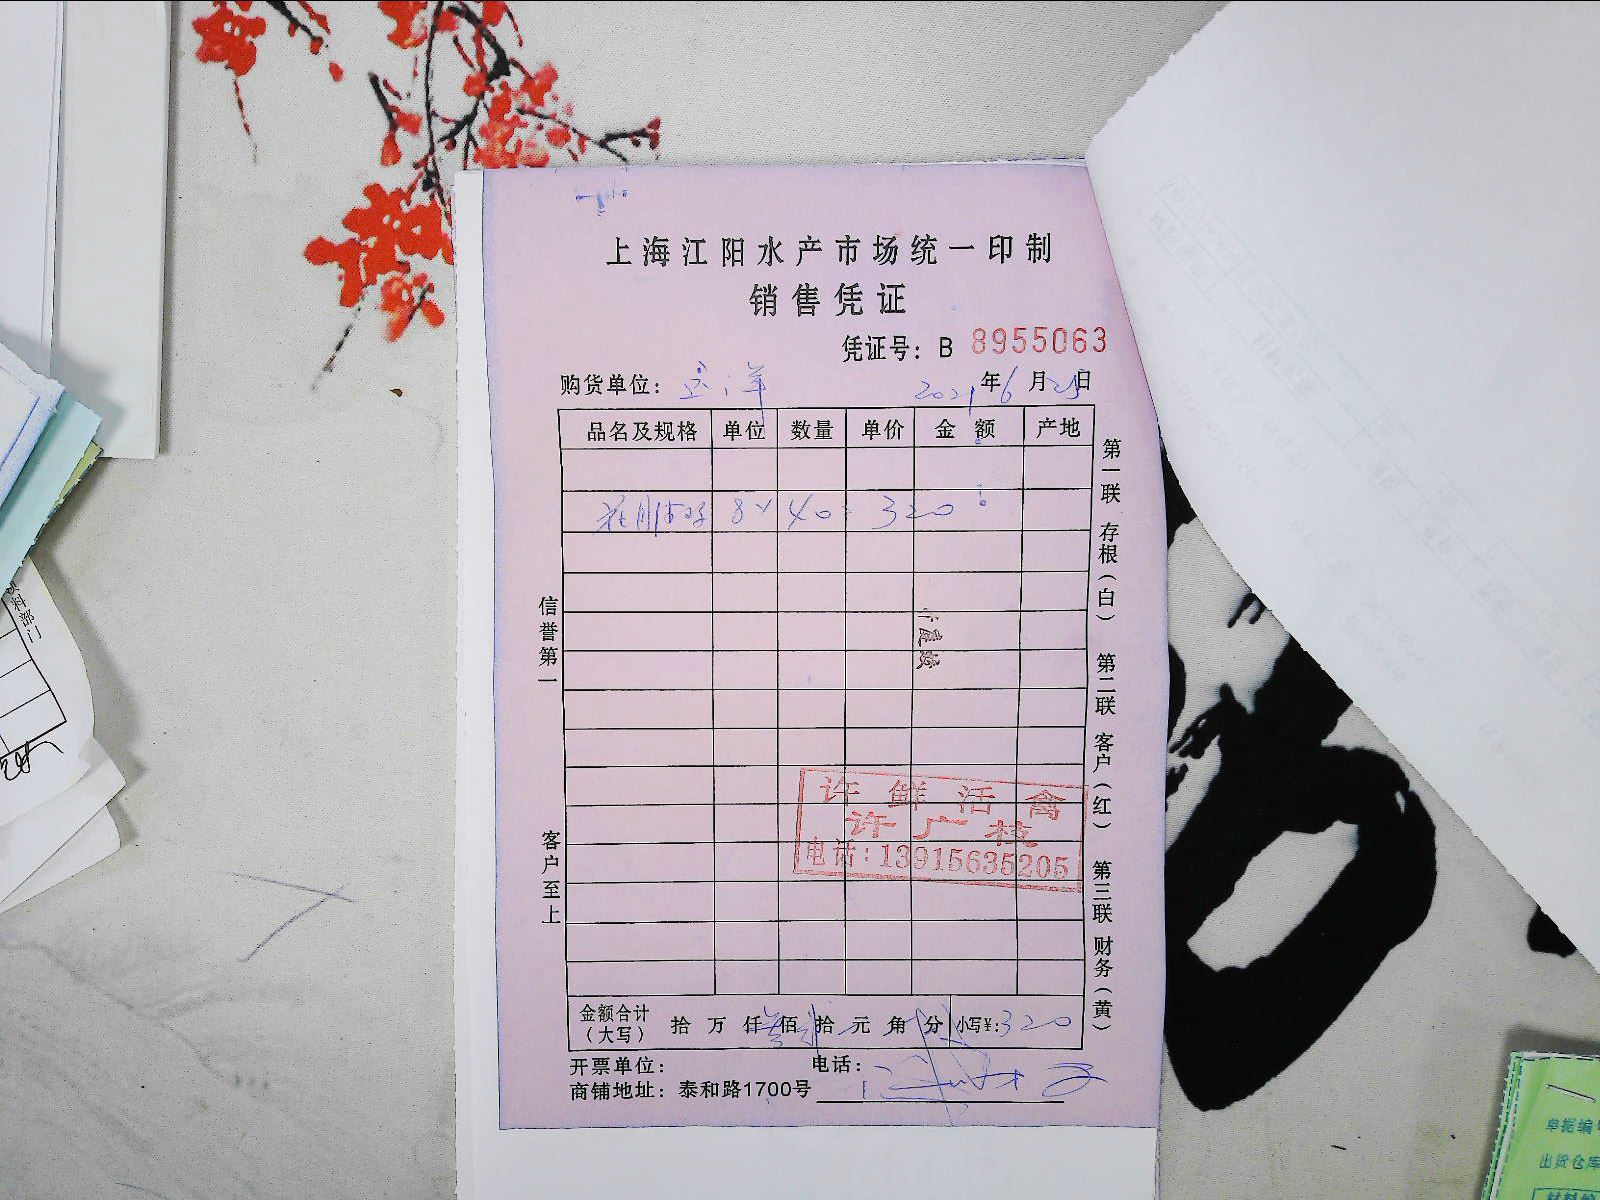 上海江阳水产市场统一印制
销售凭证
凭证号：B 8955063
购货单位： 2021年6月25日
品名及规格 单位 数量 单价 金额 产地
8× 40= 320
信誉第一
客户至上
第一联 存根（白） 第二联 客户（红） 第三联 财务（黄）
许鲜活禽
许广枝
电话：13915635205
金额合计（大写） 拾 万 仟 佰 拾 元 角 分 小写¥：320
开票单位： 电话：
商铺地址：泰和路1700号
料部门
单据编号
出货仓库